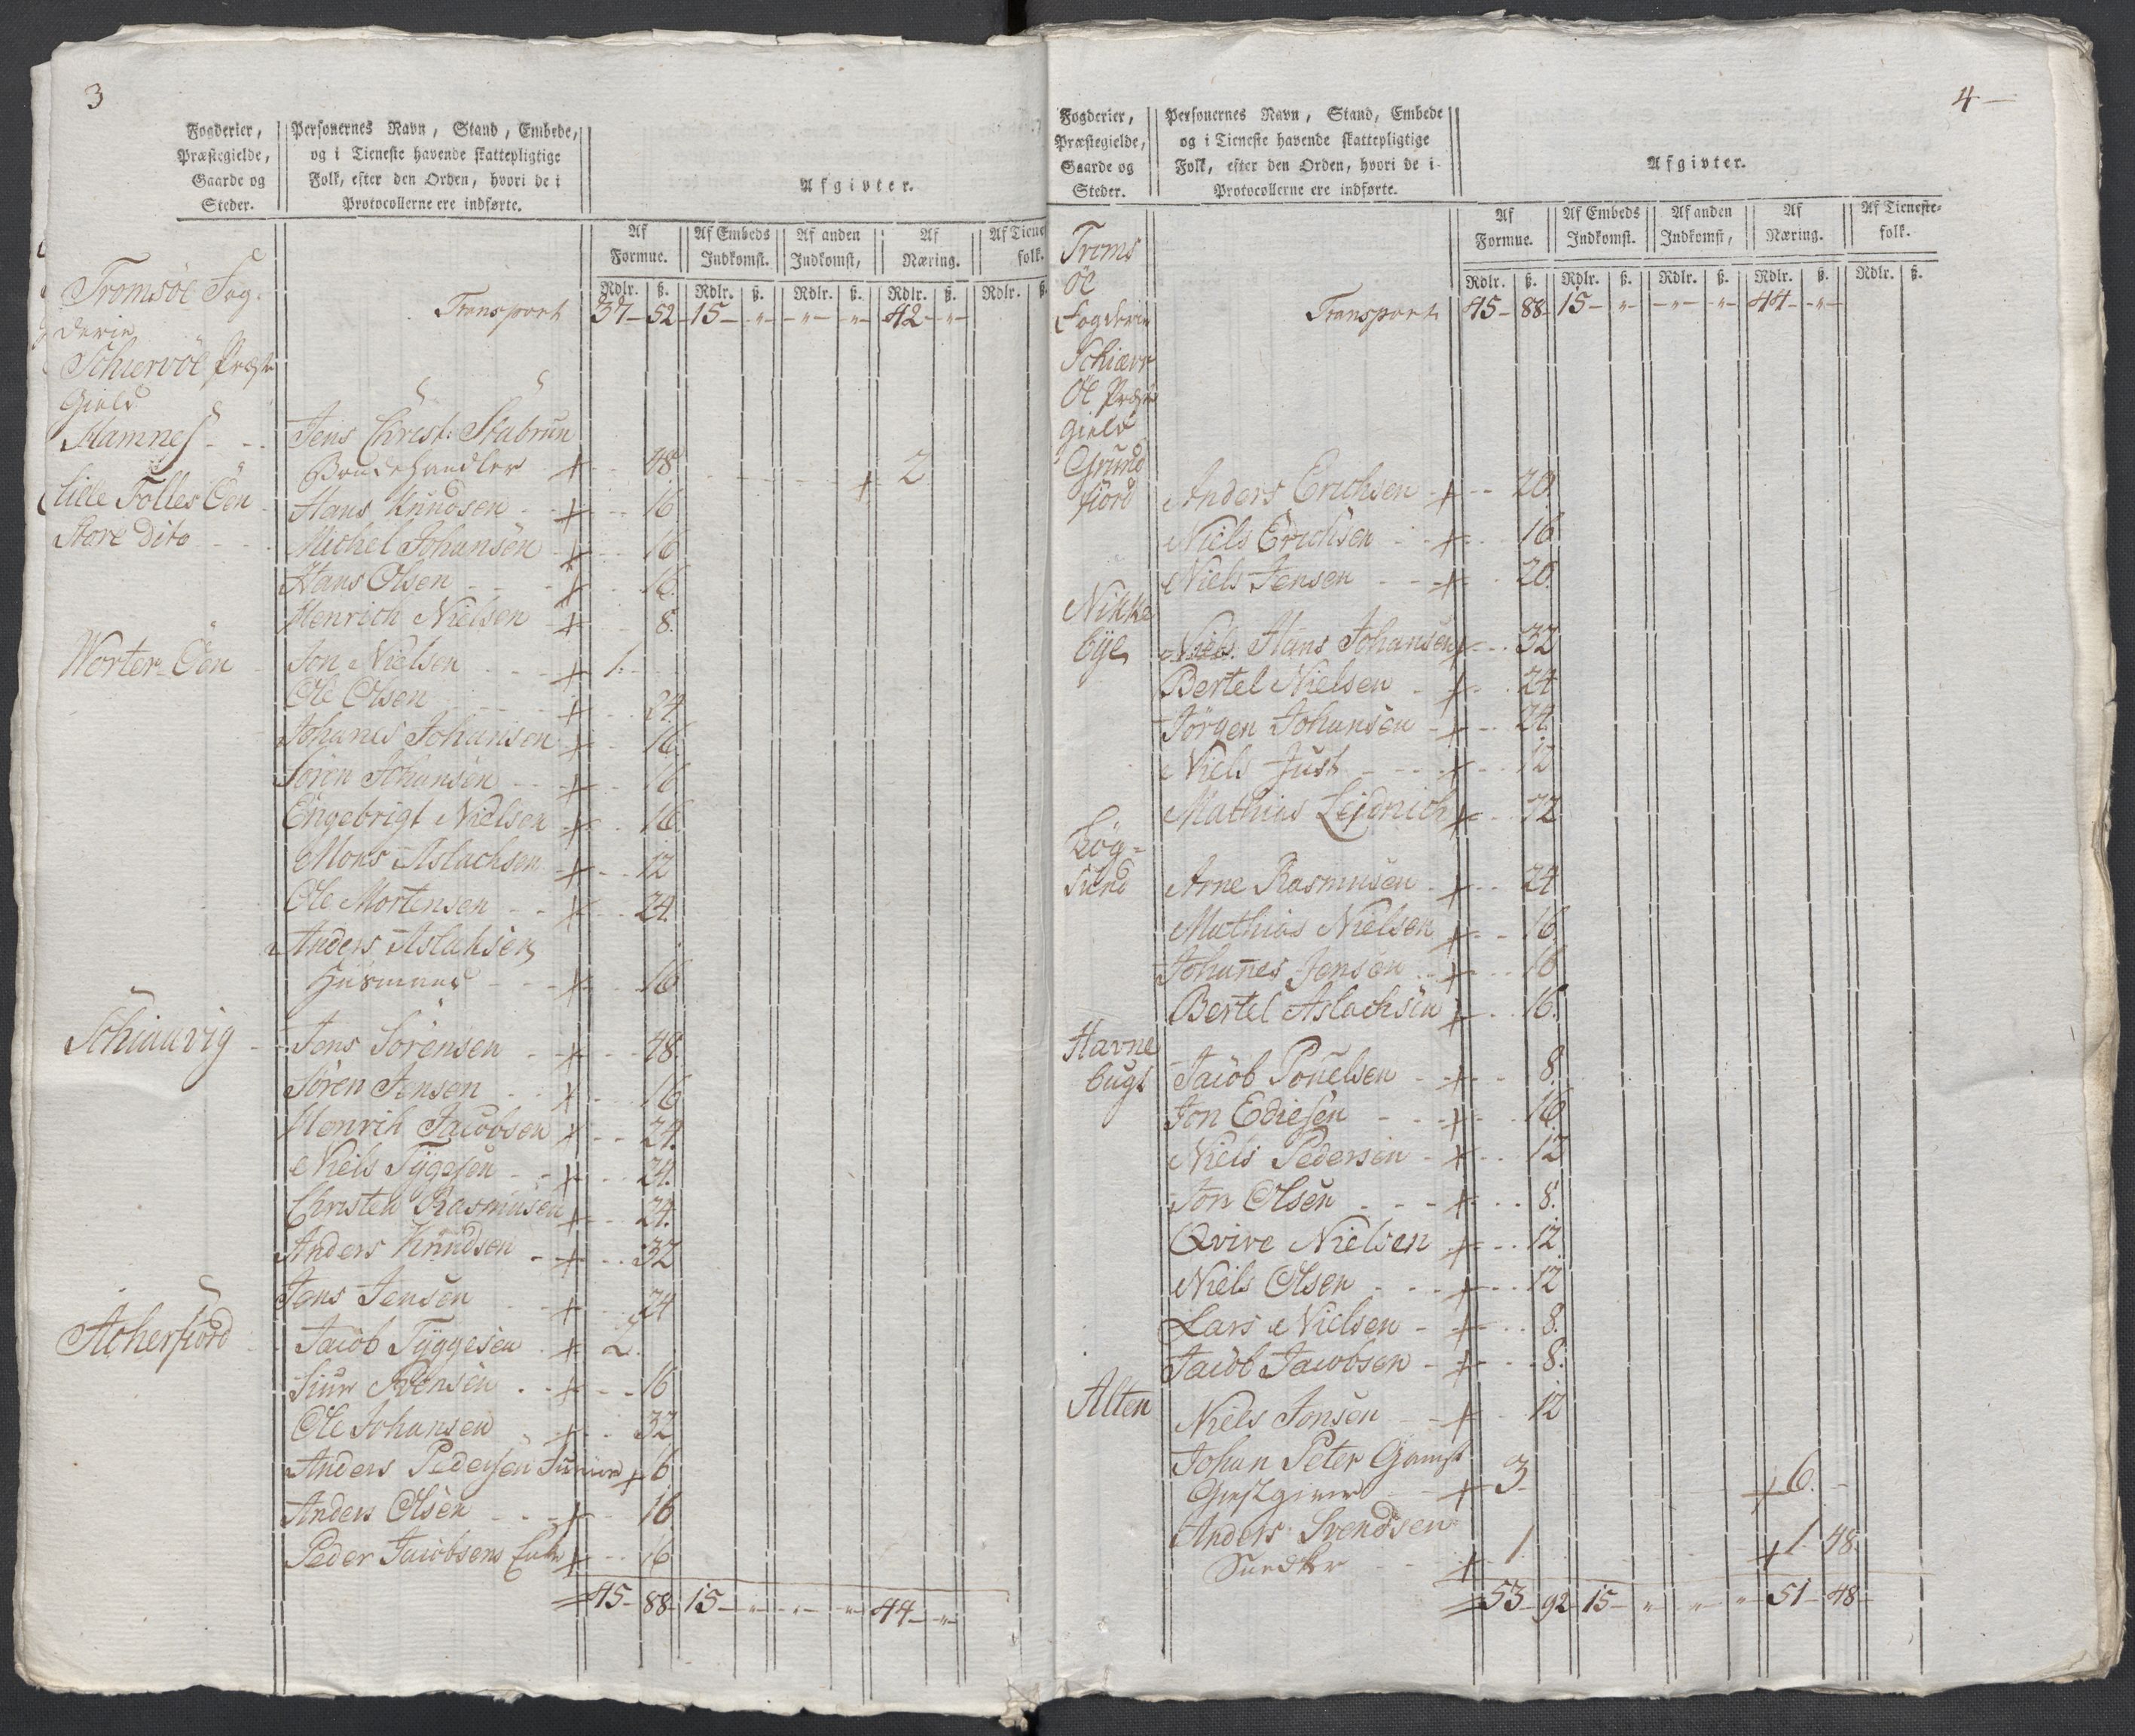 3
Fogderier, Præstegielde, Gaarde og Steder.
Personernes Navn, Stand, Embede, og i Tieneste havende skattepligtige Folk, efter den Orden, hvori de i Protocollerne ere indførte.
Afgivter.
Af Formue. Af Embeds Indkomst. Af anden Indkomst, Af Næring. Af Tiene folk.
Rdlr. ß. Rdlr. ß. Rdlr. ß. Rdlr. ß. Rdlr. ß.
Tromsöe Fog-
derie
Transport 37 - 52 - 15 - " - " - " - 42 - " -
Schiervöe Præste
Gield
Hamnes - - Jens Christ: Stabrun
Bondehandler + - 48 + 2
Lille Følles Öen Hans Knudsen - + - - 16
Store dito - - Michel Johansen + - - 16
Hans Olsen - - + - 16.
Henrich Nielsen + - - 8.
Worter-Öen Jon Nielsen - - + 1. -
Ole Olsen - - + - - 24.
Johanes Johansen + - 16
Sören Johansen - - + - 16
Engebrigt Nielsen + - 16
Mons Aslachsen + - - 12
Ole Mortensen - - + - - 24.
Anders Aslaksen
Huusmand - - + - 16
Schiauvig - Jens Sörensen - + - - 48.
Sören Jensen - - + - - 16
Henrik Jacobsen + - - 24.
Niels Tÿgesen - - + - - 24.
Christen Rasmusen + - - 24.
Anders Knudsen - + - - 32
Jens Jensen - + - - 24
Acherfiord - Jacob Tÿggesen - + 2.
Siur Iversen - - + - - 16
Ole Johansen - + - - 32
Anders Pedersen Junior + 16
Anders Olsen - - + - 16
Peder Jacobsens Enke + - - 16
45 - 88 - 15 - " - " - " - 44 - " -
4 -
Fogderier, Præstegielde, Gaarde og Steder.
Personernes Navn, Stand, Embede og i Tieneste havende skattepligtige Folk, efter den Orden, hvori de i Protocollerne ere indførte.
Afgivter.
Af Formue. Af Embeds Indkomst. Af anden Indkomst, Af Næring. Af Tieneste-folk.
Rdlr. ß. Rdlr. ß. Rdlr. ß. Rdlr. ß. Rdlr. ß.
Troms
öe
Fogderie Transport 45 - 88 - 15 - " - " - " - 44 - " -
Schiærv
öe Præste
gield
Grund
fiord Anders Erichsen - + - - 20.
Niels Erichsen - - + - - 16
Niels Jensen - - + - 20.
Nikke
bÿe Niels Hans Johansen + - - 32
Bertel Nielsen - + - - 24
Jörgen Johansen - + - - 24.
Niels Just - - - + - - 12
Mathias Lejdnich + - - 72
Lög-
sund Arne Rasmusen - + - - 24
Mathias Nielsen + - - 16
Johanes Jensen - + - - 16
Bertel Aslachsen + - - 16.
Havne
bugt Jacob Pouelsen - + - - 8.
Jon Ediesen - - + - - 16.
Niels Pedersen - + - - 12
Jon Olsen - - - + - - 8.
Qvive Nielsen + - - 12
Niels Olsen - - - + - - 12
Lars Nielsen - + - - 8.
Jacob Jacobsen - + - - 8.
Alten Niels Jonsen - + - 12
Johan Peter Gamst
Giestgiver - + 3 - + 6. -
Anders Svendsen
Snedker - + 1 + 1 48.
53 - 92 - 15 - " - " - " - 51 - 48 -